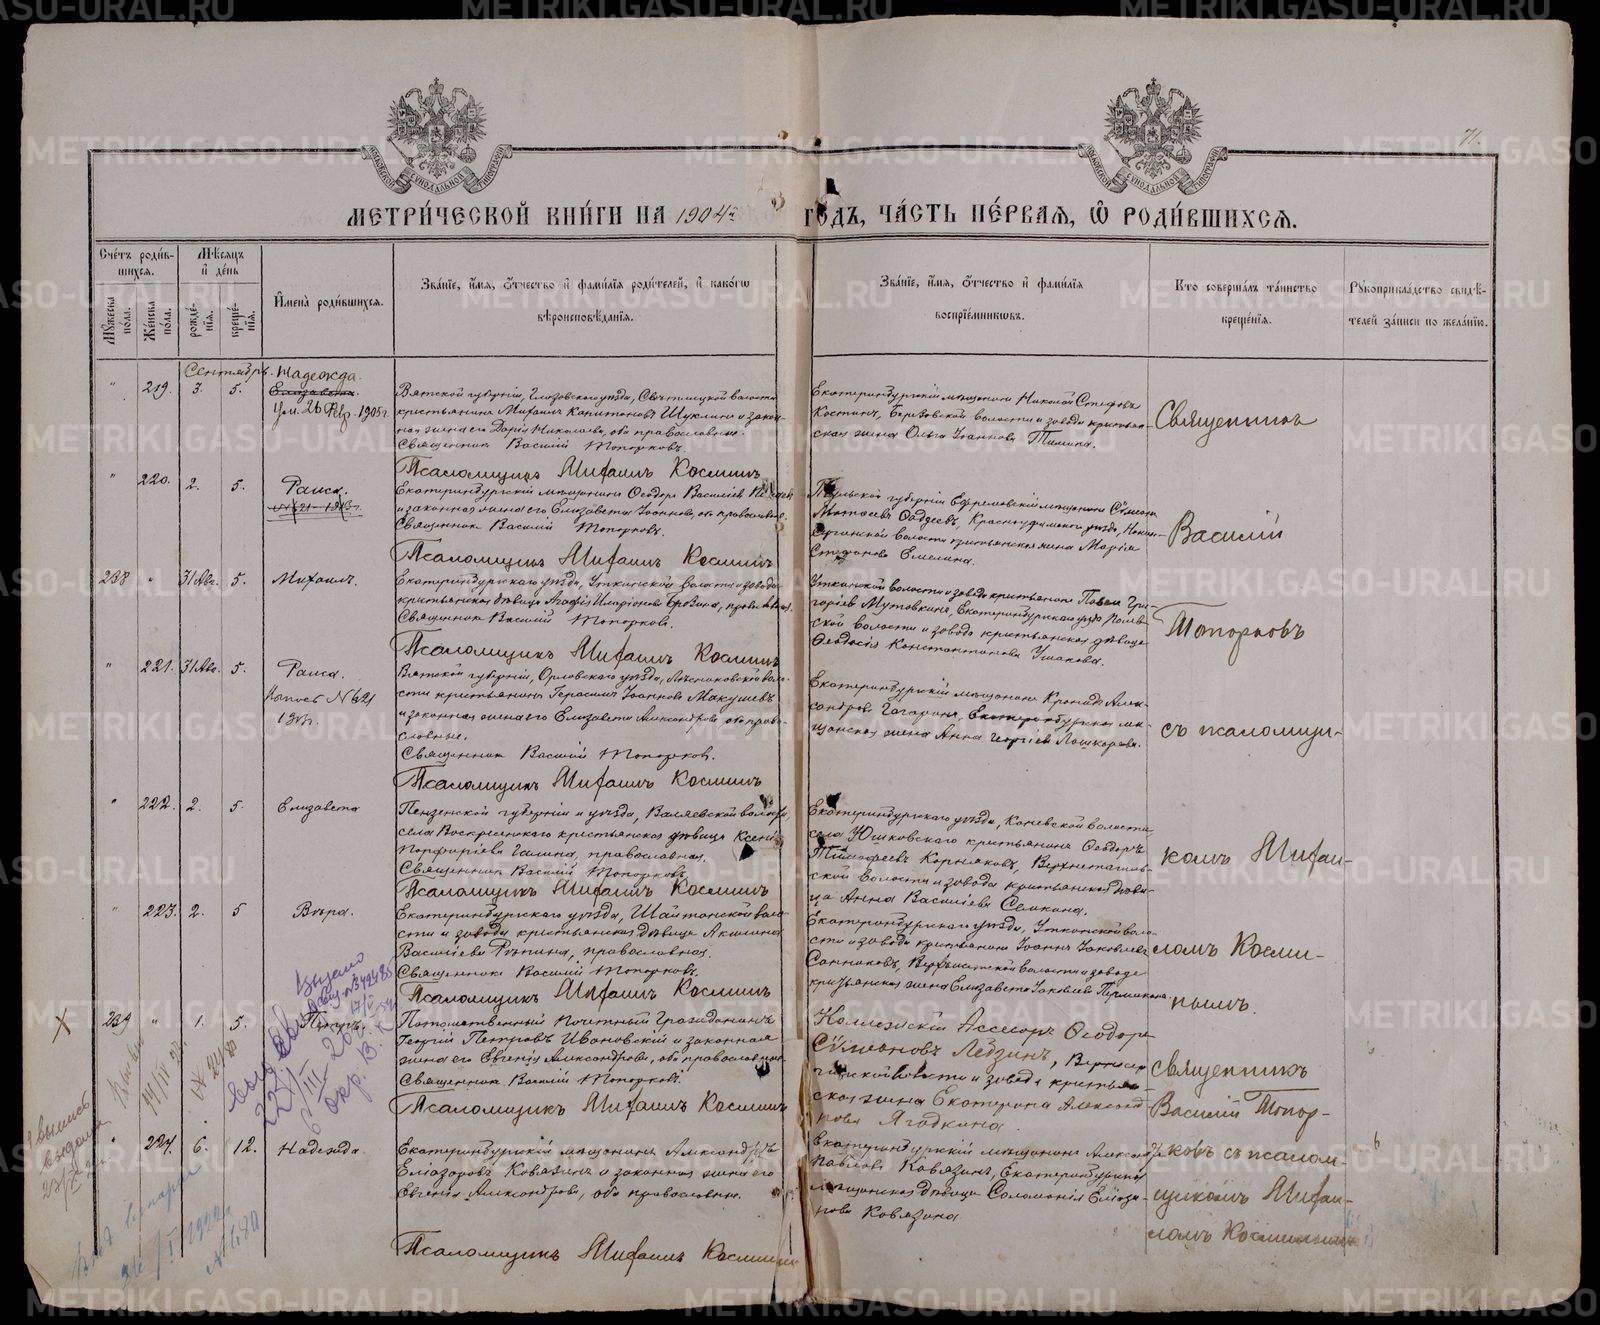 71.
МОСКОВСКОЙ СУНОДАЛЬНОЙ ТИПОГРАФІИ
МОСКОВСКОЙ СУНОДАЛЬНОЙ ТИПОГРАФІИ
МЕТРИ́ЧЕСКОЙ КНИ́ГИ НА 1904й ГОДЪ, ЧА́СТЬ ПЕ́РВАЯ, Ѡ РОДИ́ВШИХСЯ.
Сче́тъ роди́в-
шихся.
Му́жеска по́ла.
Же́нска по́ла.
Мѣ́сяцъ и҆ де́нь
рожде́-
нїя.
креще́-
нїя.
И҆мена̀ роди́вшихся.
Зва́нїе, и҆́мя, о҆́тчество и҆ фами́лїя роди́телей, и҆ како́гѡ
вѣроисповѣ́данїя.
Зва́нїе, и҆́мя, о҆́тчество и҆ фами́лїя
воспрїе́мникѡвъ.
Кто̀ соверша́лъ та́инство
креще́нїя.
Рꙋкоприкла́дство свидѣ́-
телей за́писи по жела́нїю.
Сентябрь.
" 219. 3. 5.
Надежда.
Елизавета.
Ум. 26 Февр. 1905 г.
Вятской губерніи, Глазовскаго уѣзда, Святицкой волости
крестьянинъ Михаилъ Капитоновъ Шуклинъ и закон-
ная жена его Дарія Николаева, оба православные.
Священникъ Василій Топорковъ.
Псаломщикъ Михаилъ Косминъ
Екатеринбургскій мѣщанинъ Николай Стефановъ
Костинъ, Березовской волости и завода крестьян-
ская жена Ольга Іоаннова Тилина.
Священникъ
" 220. 2. 5.
Раиса.
Екатеринбургскій мѣщанинъ Ѳеодоръ Василіевъ
и законная жена его Елизавета Іоаннова, оба православные.
Священникъ Василій Топорковъ.
Псаломщикъ Михаилъ Косминъ
Тульской губерніи Ефремовскій мѣщанинъ Сѵмеонъ
Матѳеевъ Ѳаддеевъ, Красноуфимскаго уѣзда,
Сергинской волости крестьянская жена Марія
Стефанова Емелина.
Василій
238 " 31 Авг. 5.
Михаилъ.
Екатеринбургскаго уѣзда, Уткинской волости и завода
крестьянская дѣвица Агафія Иларіонова православная.
Священникъ Василій Топорковъ.
Псаломщикъ Михаилъ Косминъ
Уткинской волости и завода крестьянинъ Павелъ Гри-
горіевъ Мутовкинъ, Екатеринбургскаго уѣзда Полев-
ской волости и завода крестьянская дѣвица
Ѳеодосія Константинова Ушакова.
Топорковъ
" 221. 31 Авг. 5.
Раиса.
Вятской губерніи, Орловскаго уѣзда, воло-
сти крестьянинъ Герасимъ Іоанновъ Макушевъ
и законная жена его Елизавета Александрова оба право-
славные.
Священникъ Василій Топорковъ.
Псаломщикъ Михаилъ Косминъ
Екатеринбургскій мѣщанинъ Кронидъ Алек-
сандровъ Гагаринъ, Екатеринбургская мѣ-
щанская жена Анна Георгіева Лошкарева.
съ псаломщи-
" 222. 2. 5.
Елизавета
Пензенской губерніи и уѣзда, Валяевской волости,
села Воскресенскаго крестьянская дѣвица Ксенія
Порфиріева Галина, православная.
Священникъ Василій Топорковъ
Псаломщикъ Михаилъ Косминъ
Екатеринбургскаго уѣзда, Коневской волости
села Юшковскаго крестьянинъ Ѳеодоръ
Тимофеевъ Корняковъ, Верхнетагиль-
ской волости и завода крестьянская дѣви-
ца Анна Василіева Семкина.
комъ Михаи-
" 223. 2. 5
Вѣра.
Екатеринбургскаго уѣзда, Шайтанской воло-
сти и завода крестьянская дѣвица Акилина
Василіева Рѣпина, православная.
Священникъ Василій Топорковъ.
Псаломщикъ Михаилъ Косминъ
Екатеринбургскаго уѣзда, Уткинской воло-
сти и завода крестьянинъ Іоаннъ Іаковлевъ
Санниковъ, волости и завода
крестьянская жена Елизавета Іаковлева Пермикина.
ломъ Косми-
нымъ.
239 " 1. 5.
Петръ.
Потомственный почетный гражданинъ
Георгій Петровъ Ивановскій и законная
жена его Евгенія Александрова, оба православные
Священникъ Василій Топорковъ.
Псаломщикъ Михаилъ Косминъ
Коллежскій Ассесоръ Ѳеодоръ
Сѵмеоновъ Ледзинъ,
волости и завода крестьян-
ская жена Екатерина Александ
рова Ягодкина.
Священникъ
Василій Топор-
" 224. 6. 12.
Надежда.
Екатеринбургскій мѣщанинъ Александръ
Еліазаровъ Ковязинъ и законная жена его
Евгенія Александрова, оба православные.
Псаломщикъ Михаилъ Косминъ
Екатеринбургскій мѣщанинъ
Павловъ Ковязинъ, Екатеринбургская
мѣщанская дѣвица Соломонія Еліаза-
рова Ковязина
ковъ съ псалом-
щикомъ Михаи-
ломъ Косминымъ
METRIKI.GASO-URAL.RU